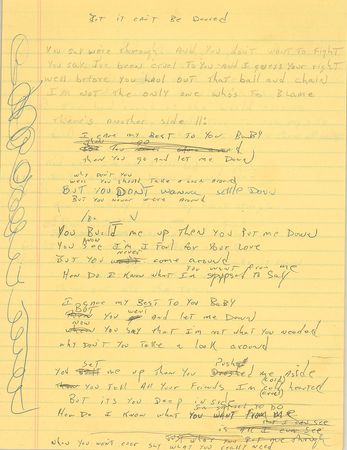 But it can't Be Denied
You say we're through. And you don't want to fight
You say I've been cruel to you and I guess your right
well before you haul out that ball and chain
I'm not the only one who's to Blame
There's another side
I gave my Best to You BABY
then you go and let me Down
why don't you
well you should take a look around
But you DON'T wanna settle Down
But you never were around
You Build me up then you Put me Down
You know I'm a Fool for Your Love
But you never come around
How Do I know what I'm supposed to Say
you want from me
I gave my Best to You Baby
But you went and let me Down
now you say that I'm not what you needed
why don't you take a look around
You set me up then you Pushed me Aside
you tell All Your Friends I'm cold hearted
(cruel)
But its you Deep inside
How Do I know what I'm supposed to do
YOU WANT FROM ME
is all I ever see
when you won't ever say what you really need